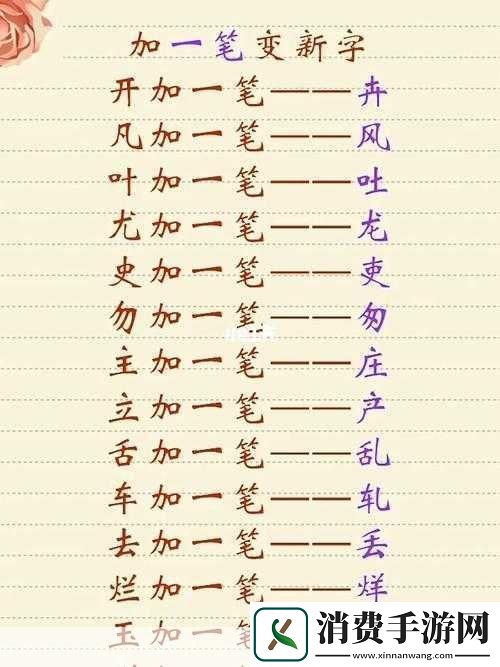 加一笔变新字
开加一笔——卉
凡加一笔——风
叶加一笔——吐
尤加一笔——龙
史加一笔——吏
勿加一笔——匆
主加一笔——庄
立加一笔——产
舌加一笔——乱
车加一笔——轧
去加一笔——丢
烂加一笔——烊
玉加一笔
消费手游网
www.xinnanwang.com